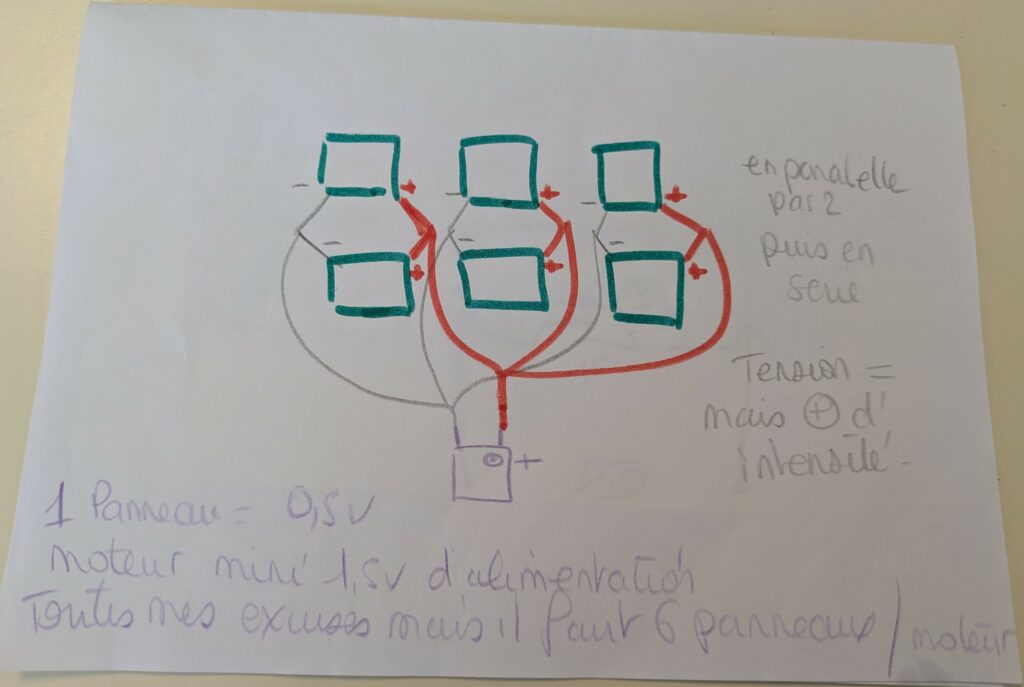 - + - + - +
- + - + - +
en paralelle
par 2
puis en
serie
Tension =
mais ⊕ d'
intensité-
+
1 Panneau = 0,5v
moteur mini 1,5v d'alimentation
Toutes mes excuses mais il faut 6 panneaux / moteur